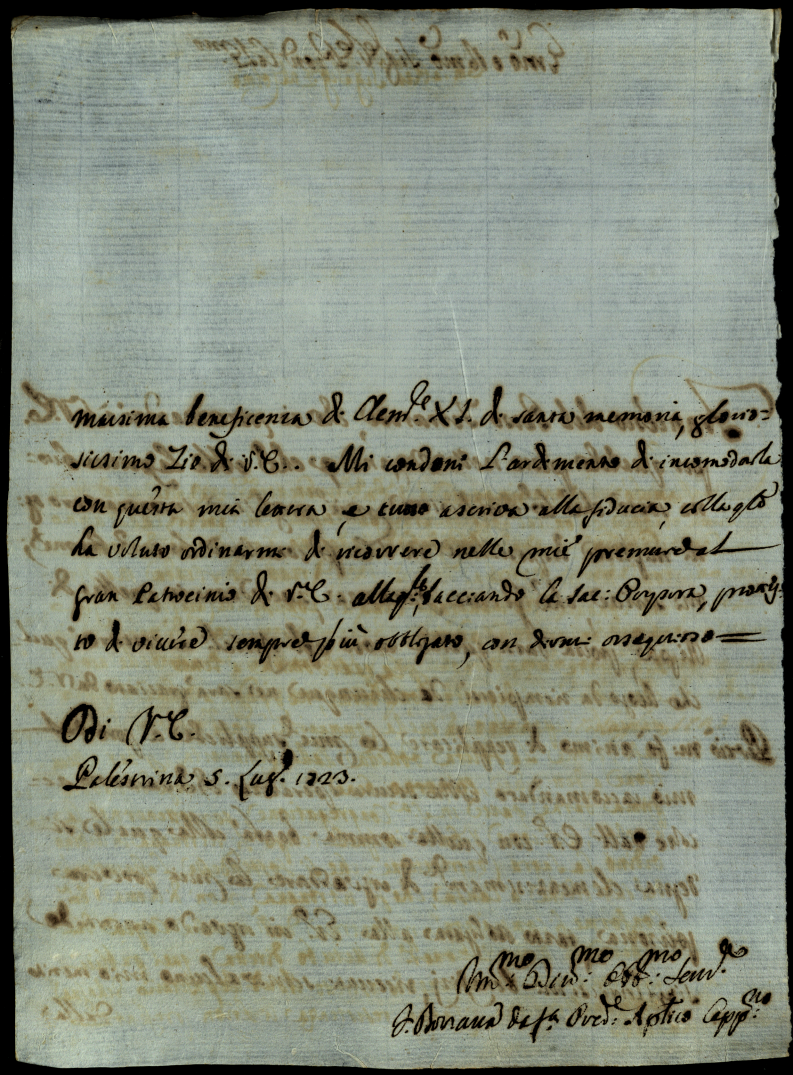 massima beneficenza di Clem.te XI. di santa memoria, glorio=
sissimo Zio di V.E.. Mi condoni L'ardimento di incomodarla
con questa mia lettera, e tutto ascriva alla fiducia, colla qle
ha voluto ordinarmi di ricorrere nelle mie premure al
gran Patrocinio di V.E. alla qle, bacciando la Sac: Porpora,
to di vivere sempre più obbligato, con
Di V.E.
Palestrina 5. Lug.o 1723.
Um.mo Dev.mo Obb.mo Serv.e
F. Bonav.a da Pred.e Aplico Capp.no